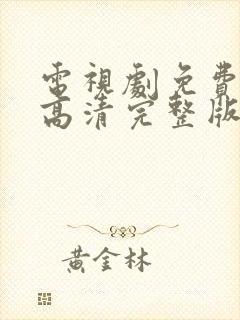 電視劇免費
高清完整版
黃金林